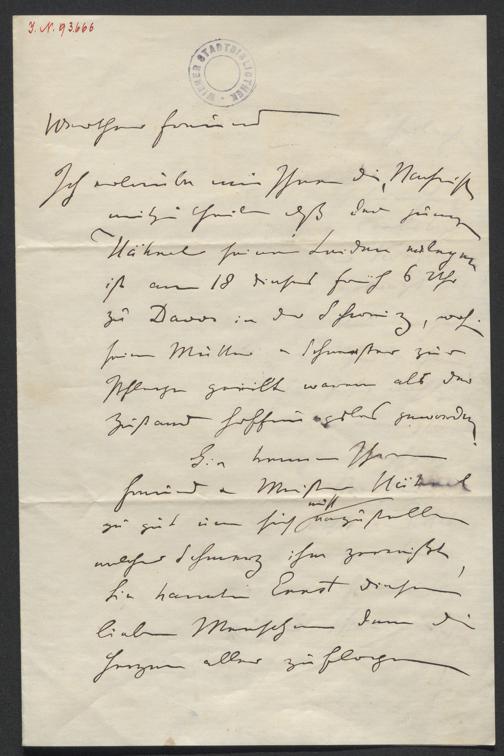 I. N. 93.666
WIENER STADTBIBLIOTHEK
Werther Freund
Ich erlaube mir Ihnen die Nachricht
mitzutheilen daß der junge
Hähnel seinem Leiden erlegen
ist am 18 dieses früh 6 Uhr
zu Davos in der Schweiz, wohin
seine Mutter u Schwester zur
Pflege geeilt waren als der
Zustand hoffnungslos geworden
Sie kennen Ihren
Freund u Meister Hähnel
zu gut um sich nicht
vorzustellen
welcher Schmerz ihn zerreißt,
Sie kannten Ernst diesen
lieben Menschen dem die
Herzen aller zuflogen